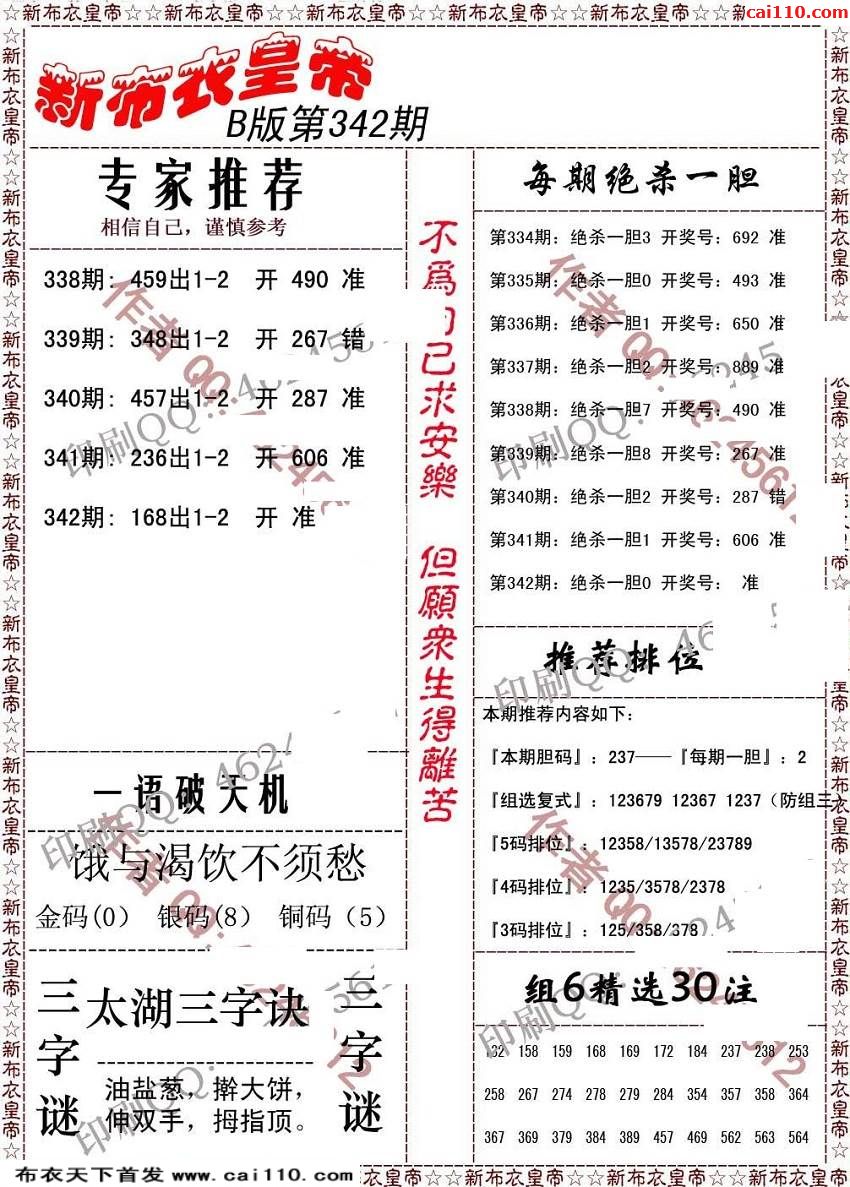 ☆☆新布衣皇帝☆☆新布衣皇帝☆☆新布衣皇帝☆☆新布衣皇帝☆☆新布衣皇帝☆☆新
cai110.com
新布衣皇帝
B版第342期
专家推荐
相信自己，谨慎参考
338期: 459出1-2 开 490 准
339期: 348出1-2 开 267 错
340期: 457出1-2 开 287 准
341期: 236出1-2 开 606 准
342期: 168出1-2 开 准
一语破天机
饿与渴饮不须愁
金码(0) 银码(8) 铜码（5）
三字谜
太湖三字诀
油盐葱，擀大饼，
伸双手，拇指顶。
三字谜
不爲
己求安樂 但願衆生得離苦
每期绝杀一胆
第334期: 绝杀一胆3 开奖号: 692 准
第335期: 绝杀一胆0 开奖号: 493 准
第336期: 绝杀一胆1 开奖号: 650 准
第337期: 绝杀一胆2 开奖号: 889 准
第338期: 绝杀一胆7 开奖号: 490 准
第339期: 绝杀一胆8 开奖号: 267 准
第340期: 绝杀一胆2 开奖号: 287 错
第341期: 绝杀一胆1 开奖号: 606 准
第342期: 绝杀一胆0 开奖号: 准
推荐排位
本期推荐内容如下:
『本期胆码』: 237——『每期一胆』: 2
『组选复式』: 123679 12367 1237（防组三）
『5码排位』: 12358/13578/23789
『4码排位』: 1235/3578/2378
『3码排位』: 125/358/378
组6精选30注
132 158 159 168 169 172 184 237 238 253
258 267 274 278 279 284 354 357 358 364
367 369 379 384 389 457 469 562 563 564
布衣天下首发 www.cai110.com
衣皇帝☆☆新布衣皇帝☆☆新布衣皇帝☆☆新布衣皇帝☆☆